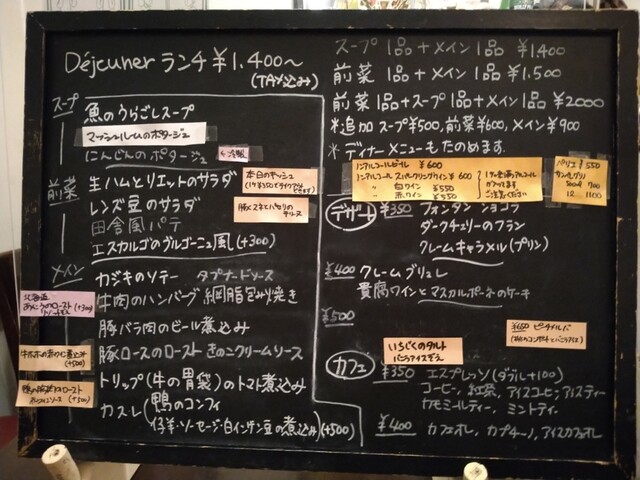 Déjeuner ランチ ¥1,400〜
(TAX込み)
スープ
魚のうらごしスープ
マッシュルームのポタージュ
にんじんのポタージュ
←冷製
前菜
生ハムとリエットのサラダ
本日のキッシュ
レンズ豆のサラダ
田舎風パテ
エスカルゴのブルゴーニュ風(+300)
メイン
カジキのソテー タプナードソース
北海道
牛肉のハンバーグ 網脂包み焼き
豚バラ肉のビール煮込み
豚ロースのロースト きのこクリームソース
牛ホホの赤ワイン煮込み
(+500)
トリップ(牛の胃袋)のトマト煮込み
カスレ(鴨のコンフィ
仔羊・ソーセージ・白インゲン豆の煮込み)(+500)
スープ 1品+メイン 1品 ¥1.400
前菜 1品+メイン 1品 ¥1.500
前菜 1品+スープ1品+メイン1品 ¥2000
*追加 スープ¥500,前菜¥600,メイン¥900
*ディナーメニューもたのめます。
ノンアルコールビール ¥600
ノンアルコール スパークリングワイン ¥600
〃 白ワイン ¥550
〃 赤ワイン ¥550
ペリエ ¥550
デザート
¥350 フォンダン ショコラ
ダークチェリーのフラン
クレームキャラメル(プリン)
¥400 クレームブリュレ
貴腐ワインとマスカルポーネのケーキ
¥500
いちじくのタルト
バニラアイスぞえ
カフェ
¥350 エスプレッソ(ダブル+100)
コーヒー, 紅茶, アイスコーヒー, アイスティー
カモミールティー, ミントティー
¥400 カフェオレ, カプチーノ, アイスカフェオレ